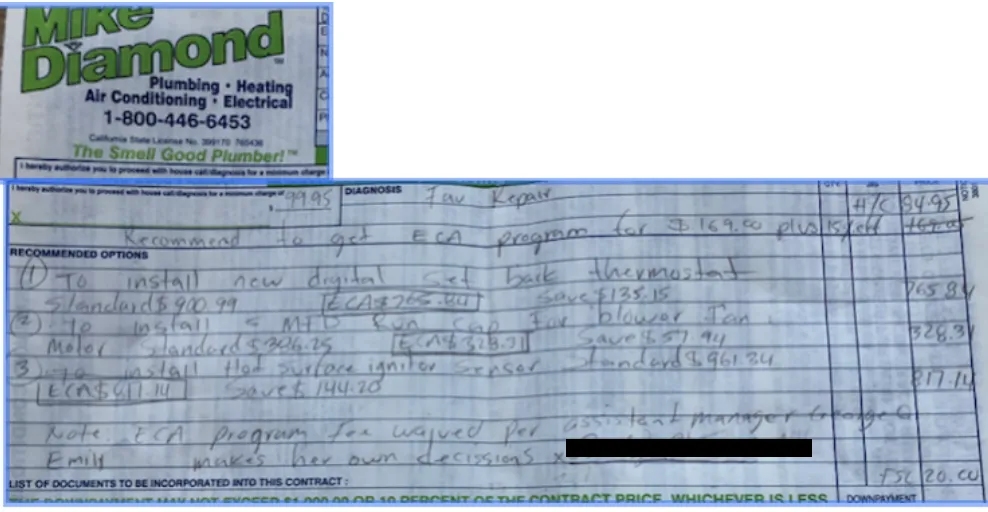 Mike
Diamond
Plumbing • Heating
Air Conditioning • Electrical
1-800-446-6453
California State License No. 399170 765436
The Smell Good Plumber!™
I hereby authorize you to proceed with house call/diagnosis for a minimum charge
I hereby authorize you to proceed with house call/diagnosis for a minimum charge of
$ 99.95
DIAGNOSIS Fav Repair
H/C 94.95
X
Recommend to get ECA program for $169.00 plus 15% off 169.00
RECOMMENDED OPTIONS
(1) To install new digital set back thermostat
Standard $900.99 ECA $765.84 Save $135.15 765.84
(2) To install 5 MFD Run Cap For blower Fan
Motor Standard ECA $328.31 Save $57.94 328.31
(3) To install Hot surface ignitor sensor Standard $961.34
ECA $817.14 Save $144.20 817.14
Note. ECA program fee waived per assistant manager George
Emily makes her own decissions x
FSC 20.00
LIST OF DOCUMENTS TO BE INCORPORATED INTO THIS CONTRACT:
THE DOWNPAYMENT MAY NOT EXCEED $1,000.00 OR 10 PERCENT OF THE CONTRACT PRICE, WHICHEVER IS LESS
DOWNPAYMENT